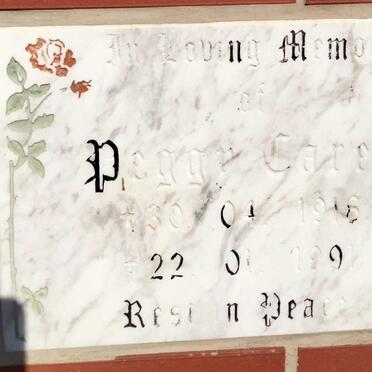 In Loving Memo
of
Peggy Care
30. 04. 1916
22. 01.
Rest in Peace